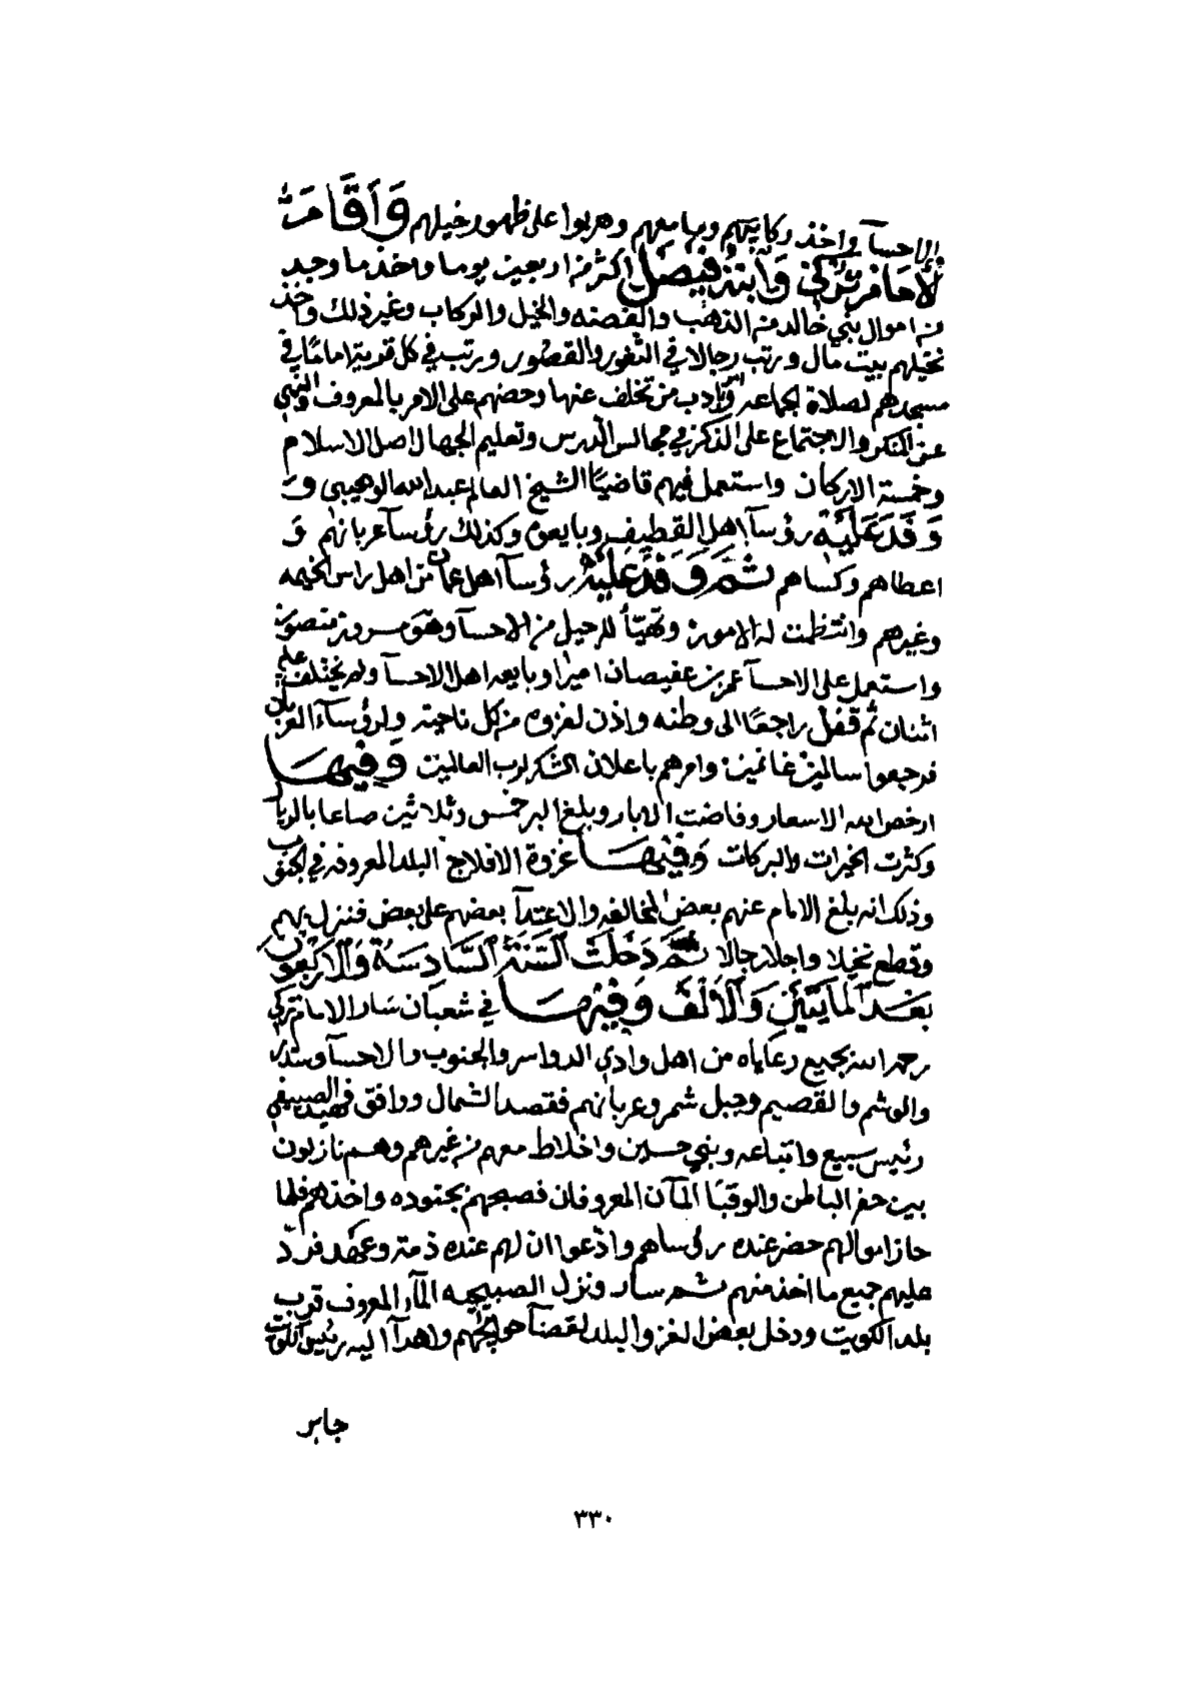 والاحسآ واخذ ركايبهم وما معهم وهربوا على ظهور خيلهم وَأقَامَ
الامَام تركي وَابنه فيصل اكثر من اربعين يوما واخذ ما وجد
من اموال بني خالد من الذهب والفضه والخيل والركاب وغير ذلك واخذ
نخيلهم بيت مال ورتب رجالا في الثغور والقصور ورتب في كل قرية امامًا في
مسجدهم لصلاة الجماعه وادب من تخلف عنها وحضهم على الامر بالمعروف والنهي
عن المنكر والاجتماع على الذكر في مجالس الدرس وتعليم الجهال اصل الاسلام
وخمسة الاركان واستعمل فيهم قاضيًا الشيخ العالم عبدالله الوهيبي وَ
وَفَدَ عَلَيْهِ رؤسآ اهل القطيف وبايعوه وكذلك رؤسآ عربانهم وَ
اعطاهم وكساهم ثم وَفَدَ عليه رؤسآ اهل عمان من اهل راس الخيمه
وغيرهم وانتظمت له الامور وتهيّأ للرحيل من الاحسآ وهو مسرور منصور
واستعمل على الاحسآ عمر بن عفيصان اميرا وبايعه اهل الاحسآ ولم يختلف عليه
اثنان ثم قفل راجعًا الى وطنه واذن لغزوه من كل ناحية ولرؤسآء العربان
فرجعوا سالمين غانمين وامرهم باعلان الشكر لرب العالمين وَفيهَا
ارخص الله الاسعار وفاضت الابار وبلغ البر خمس وثلاثين صاعا بالريال
وكثرت الخيرات والبركات وَفيهَا غزوة الافلاج البلد المعروفه في الجنوب
وذلك انه بلغ الامام عنهم بعض المخالفه والاعتدآ بعضهم على بعض فنزل بهم
وقطع نخيلا واجلا رجالا ثم دَخَلَت السَّنَة السَّادِسَة وَالاربَعُون
بَعْدَ المايَتَيْنِ وَالأَلْف وَفيهَا في شعبان سَار الامام تركي
رحمه الله بجميع رعاياه من اهل وادي الدواسر والجنوب والاحسآ وسدير
والوشم والقصيم وجبل شمر وعربانهم فقصد الشمال ووافق فهيد الصييفي
رئيس سبيع واتباعه وبني حسين واخلاط معهم من غيرهم وهم نازلون
بين حفر الباطن والوقبَا المآن المعروفان فصبحهم بجنوده واخذهم فلما
حاز اموالهم حضر عنده رئساهم وادّعوا ان لهم عنده ذمة وعهد فردّ
عليهم جميع ما اخذ منهم ثم سار ونزل الصبيحيه المآء المعروف قرب
بلد الكويت ودخل بعض الغزو البلد لقضآ حوائجهم واهدآ اليه رئيس الكويت
جابر
٣٣٠